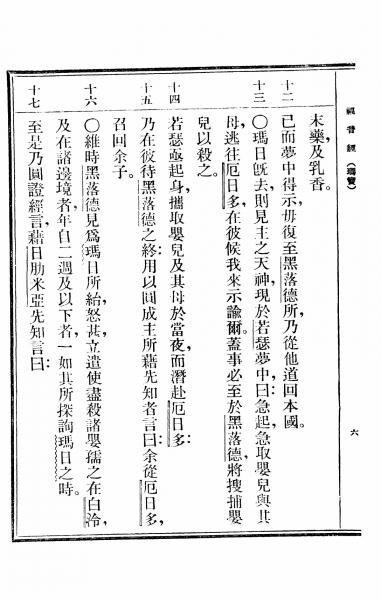 福音經（瑪竇）
六
末藥，及乳香。
十二
已而夢中得示，毋復至黑落德所，乃從他道回本國。
十三
〇瑪日既去，則見主之天神，現於若瑟夢中曰：急起，急取嬰兒與其
母，逃往厄日多，在彼候我來示諭爾。蓋事必至於黑落德，將搜捕嬰
兒以殺之。
十四
若瑟亟起身，攜取嬰兒及其母於當夜，而潛赴厄日多：
十五
乃在彼待黑落德之終：用以圓成主所藉先知者言曰：余從厄日多，
召回余子。
十六
〇維時黑落德見爲瑪日所紿，怒甚，立遣使盡殺諸嬰孺之在白冷，
及在諸邊境者，年自二週及以下者，一如其所探詢瑪日之時。
十七
至是乃圓證經言，藉日肋米亞先知言曰：